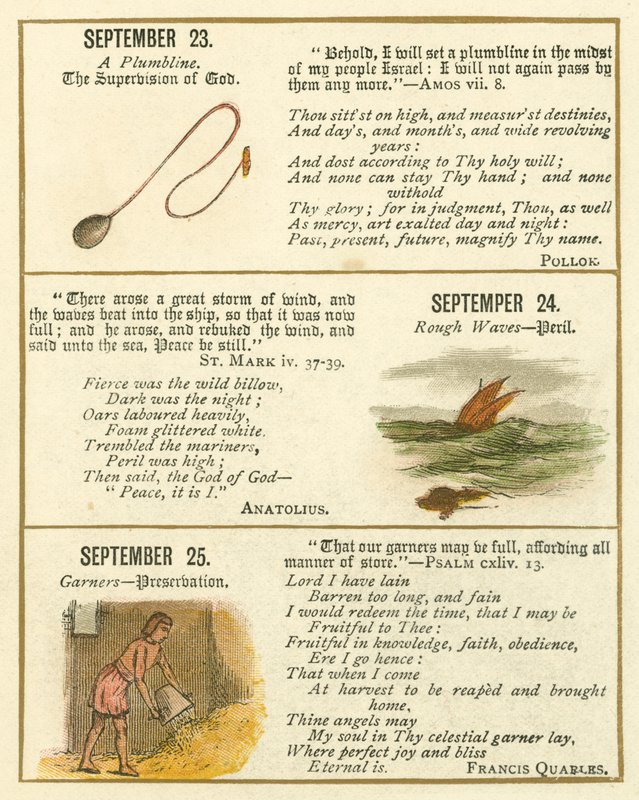 SEPTEMBER 23.
A Plumbline.
The Supervision of God.
“ Behold, I will set a plumbline in the midst
of my people Israel : I will not again pass by
them any more.”—AMOS vii. 8.
Thou sitt'st on high, and measur'st destinies,
And day's, and month's, and wide revolving
years :
And dost according to Thy holy will ;
And none can stay Thy hand ; and none
withold
Thy glory ; for in judgment, Thou, as well
As mercy, art exalted day and night :
Past, present, future, magnify Thy name.
POLLOK.
“ There arose a great storm of wind, and
the waves beat into the ship, so that it was now
full ; and he arose, and rebuked the wind, and
said unto the sea, Peace be still.”
ST. MARK iv. 37-39.
Fierce was the wild billow,
Dark was the night ;
Oars laboured heavily,
Foam glittered white.
Trembled the mariners,
Peril was high ;
Then said, the God of God—
“ Peace, it is I.”
ANATOLIUS.
SEPTEMPER 24.
Rough Waves—Peril.
SEPTEMBER 25.
Garners—Preservation.
“ That our garners may be full, affording all
manner of store.”—PSALM cxliv. 13.
Lord I have lain
Barren too long, and fain
I would redeem the time, that I may be
Fruitful to Thee :
Fruitful in knowledge, faith, obedience,
Ere I go hence :
That when I come
At harvest to be reapèd and brought
home,
Thine angels may
My soul in Thy celestial garner lay,
Where perfect joy and bliss
Eternal is.
FRANCIS QUARLES.